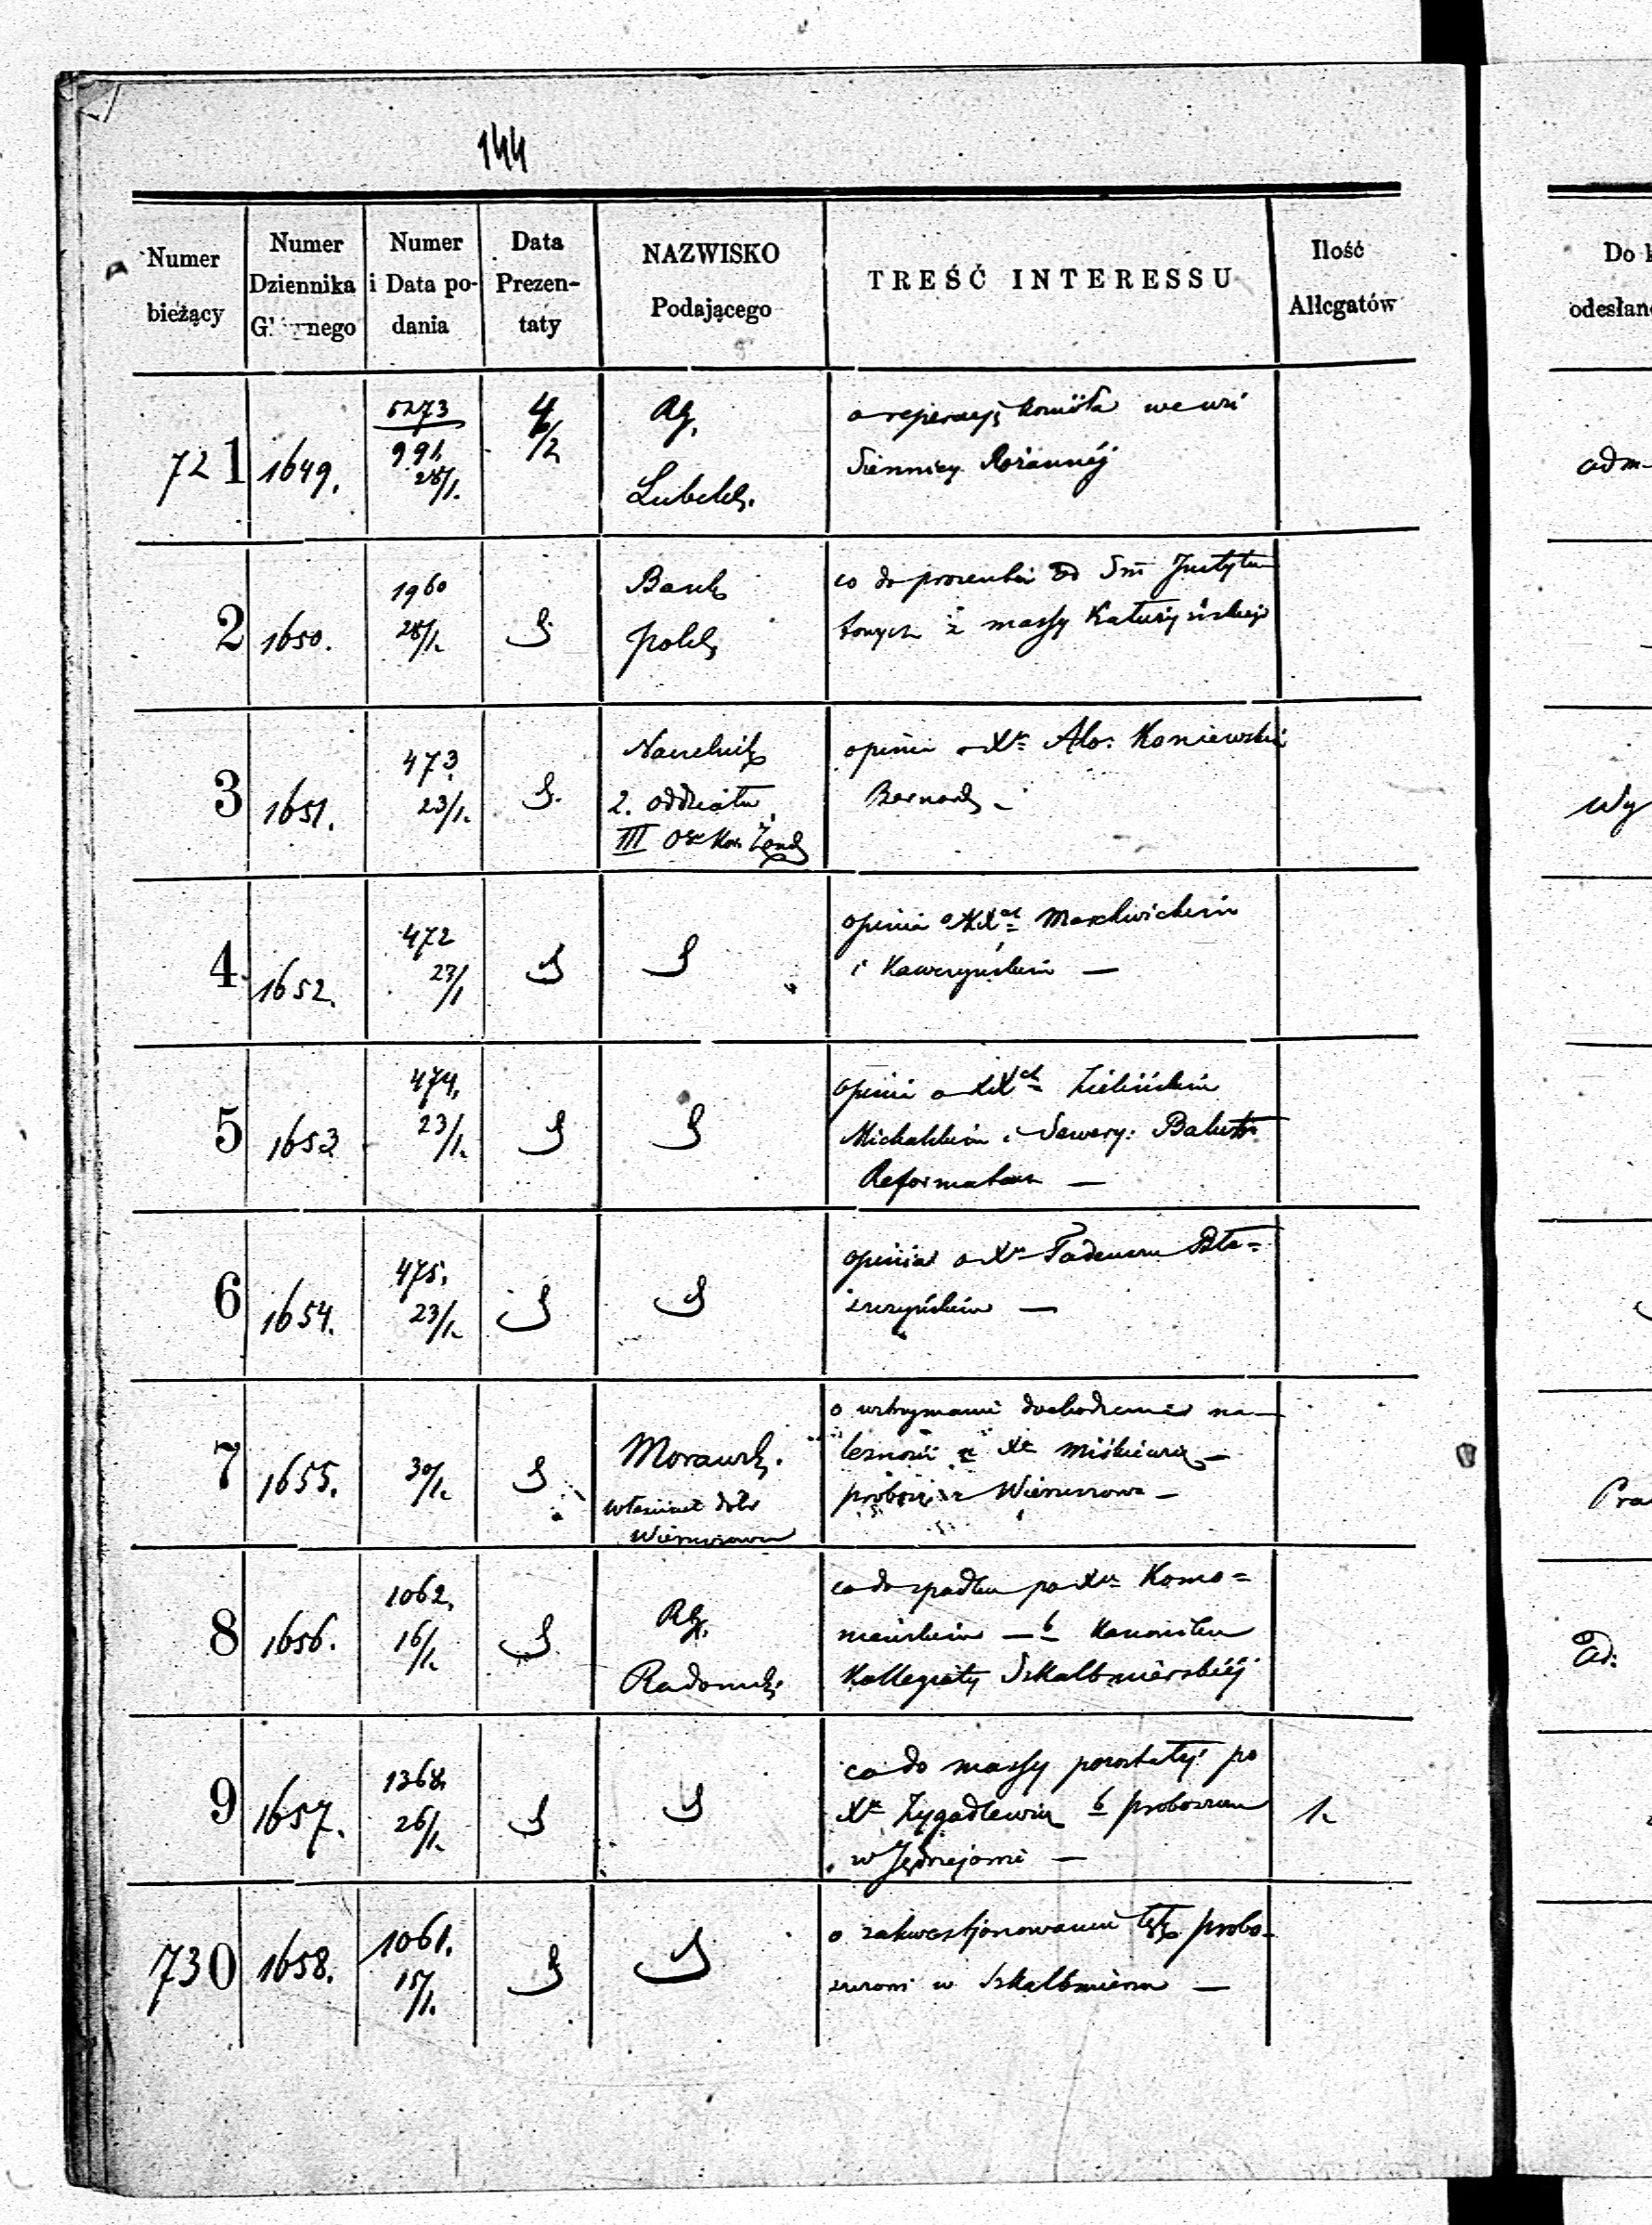 144
Numer bieżący
Numer Dziennika Głównego
Numer i Data podania
Data Prezentaty
NAZWISKO Podającego
TREŚĆ INTERESSU
Ilość Allegatów
Do k
odesłan
721 1649. 5273 991 28/1. 4/2 RG. Lubels.
o reperacyą kościoła we wsi
Siennicy Różannéj
adm
2 1650. 1960 28/1. Bank Polsk
co do procentu od Sm Instytu
towych z massy
3 1651. 473 23/1. Naczelnik
2. oddziału
III Żand
opinia o Xu Alo: Koniewskim
Bernard –
Wy
4 1652. 472 23/1
opinia o XXach
i Kawczyńskim —
5 1653 474. 23/1.
opinia o XXach Zielińskim
Michalskim i Sewery:
Reformatach —
6 1654. 475. 23/1.
opinia o Xu Tadeuszu Bła=
szczyńskim —
7 1655. 30/1. Morawsk.
właściciel dóbr
o wstrzymanie dochodzenia na–
leżności z Xa Miśkiewicza –
proboszcza –
Pra
8 1656. 1062. 16/1. RG. Radomsk.
co do spadku po Xu Komo=
b Kanoniku
Kollegiaty Skalbmierskiéj
Ad:
9 1657. 1368. 26/1.
co do massy pozostałéj po
Xu Zygadlewiczu b proboszczu
w Jędrzejowie —
1.
730 1658. 1061. 15/1.
o zakwestjonowaniu probo–
szczowi w Skalbmierzu —